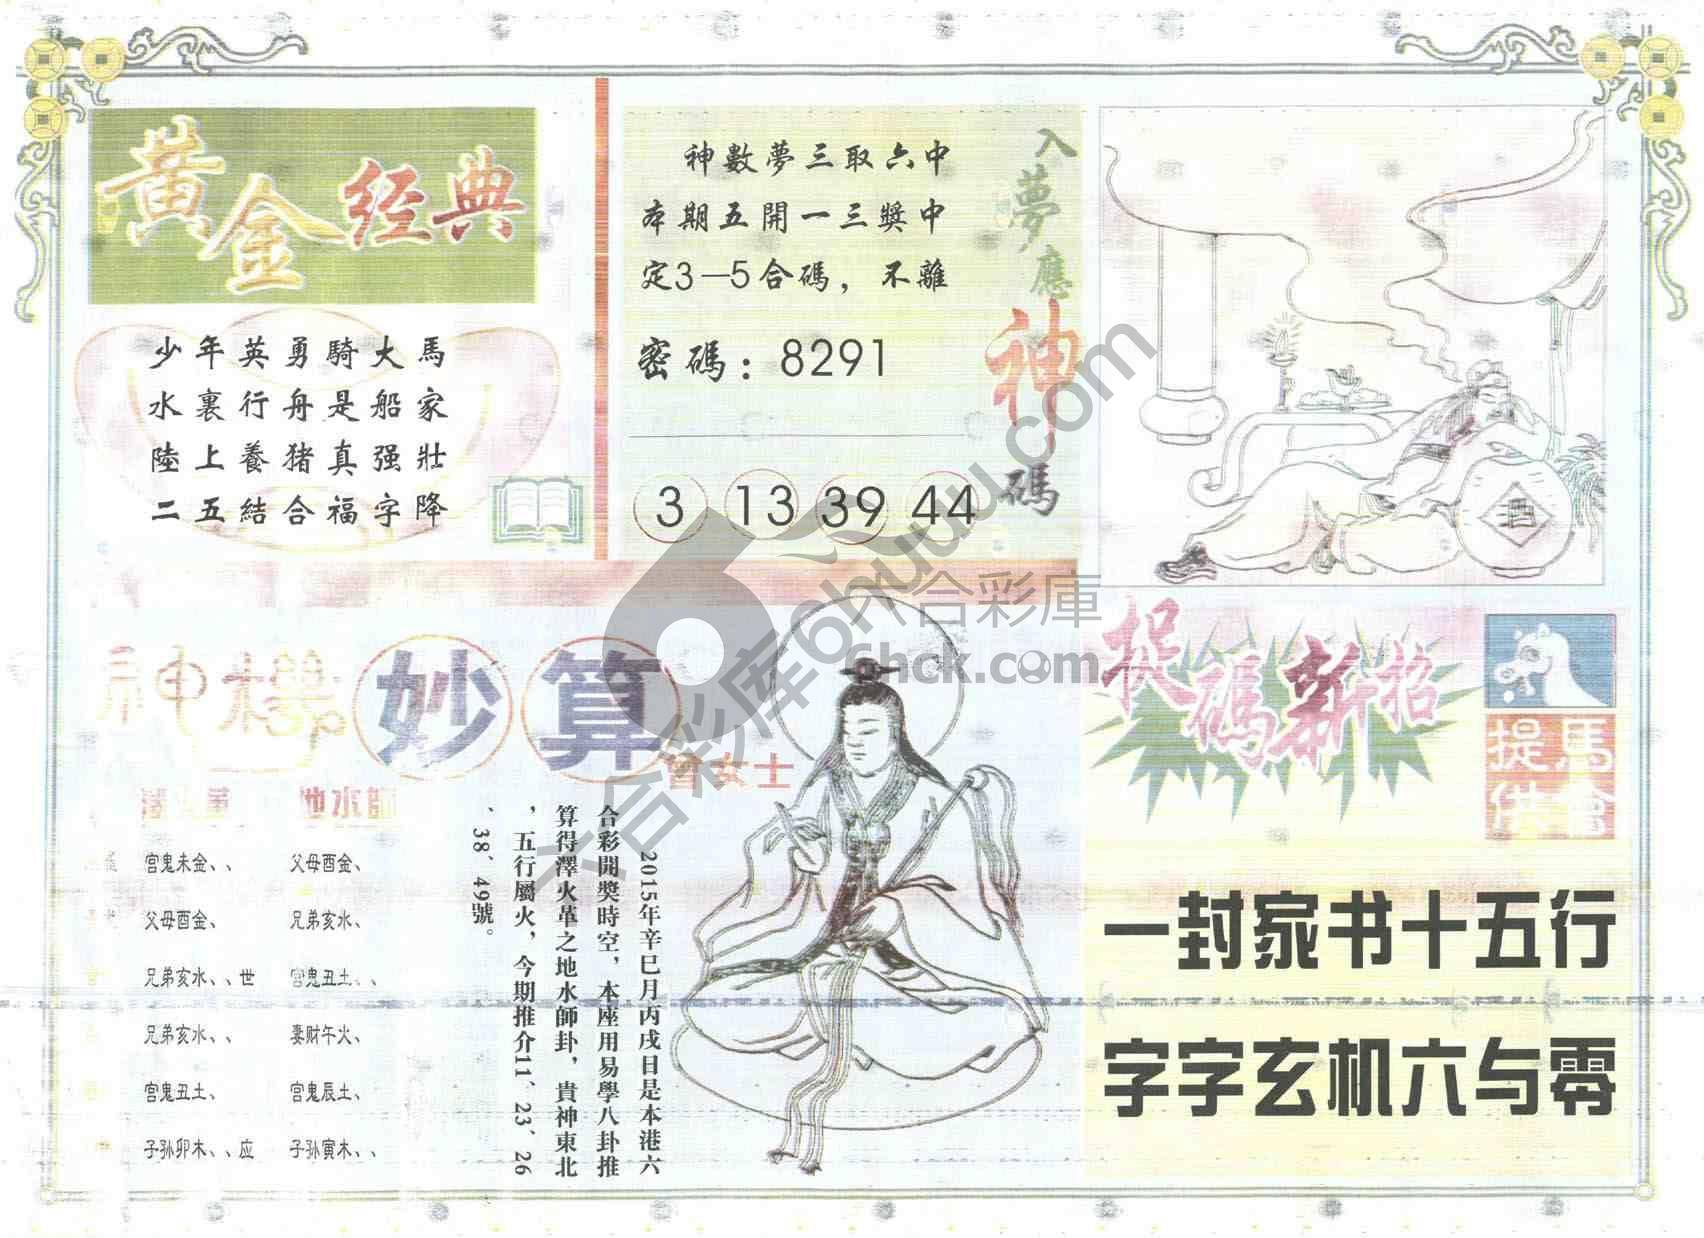 黃金经典
少年英勇騎大馬
水裏行舟是船家
陸上養猪真强壯
二五結合福字降
入夢應神碼
神數夢三取六中
本期五開一三獎中
定3—5合碼，不離
密碼：8291
3 13 39 44
酒
神機妙算
曾女士
澤火革 地水師
官鬼未金、、 父母酉金、
父母酉金、 兄弟亥水、
兄弟亥水、、世 官鬼丑土、、
兄弟亥水、、 妻财午火、
官鬼丑土、 官鬼辰土、
子孙卯木、、应 子孙寅木、、
2015年辛巳月丙戌日是本港六
合彩開獎時空，本座用易學八卦推
算得澤火革之地水師卦，貴神東北
，五行屬火，今期推介11、23、26
、38、49號。
捉碼新招
馬會提供
一封家书十五行
字字玄机六与零
六合彩库6huuu.com
六合彩庫
6hck.com